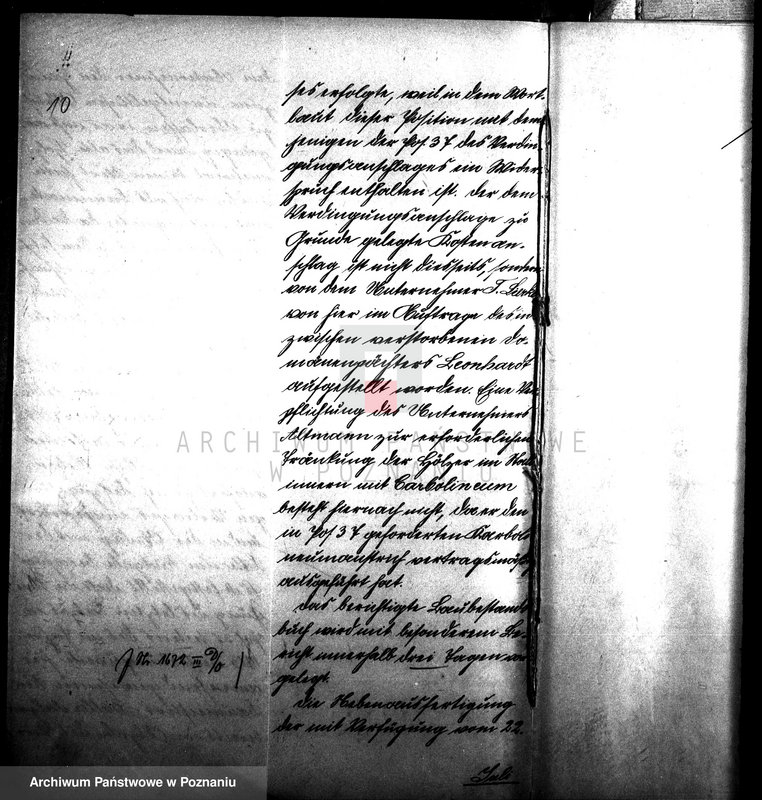 10
ses erfolgte, weil in dem Wort-
laut dieser Position mit dem
jenigen der Pos 37 des Verdin
gungsanschlages ein Wider-
spruch enthalten ist. Der dem
Verdingungsanschlage zu
Grunde gelegte Kostenan-
schlag ist nicht diesseits, sondern
von dem Unternehmer T.
von hier im Auftrage des in
zwischen verstorbenen Do-
mänenpächters Leonhardt
aufgestellt worden. Eine Ver
pflichtung des Unternehmers
Altmann zur erforderlichen
Tränkung der Hölzer im Stall
innern mit Carbolineum
besteht hiernach nicht, da er den
in Pos 37 geforderten Karboli
neumanstrich vertragsmäßig
ausgeführt hat.
Das berichtigte Baubestands
buch wird mit besonderem Be-
richt innerhalb drei Tagen vor
gelegt.
J Nr 1672 III
Die Nebenausfertigung
der mit Verfügung vom 22.
Juli
ARCHIWUM PAŃSTWOWE
W POZNANIU
Archiwum Państwowe w Poznaniu